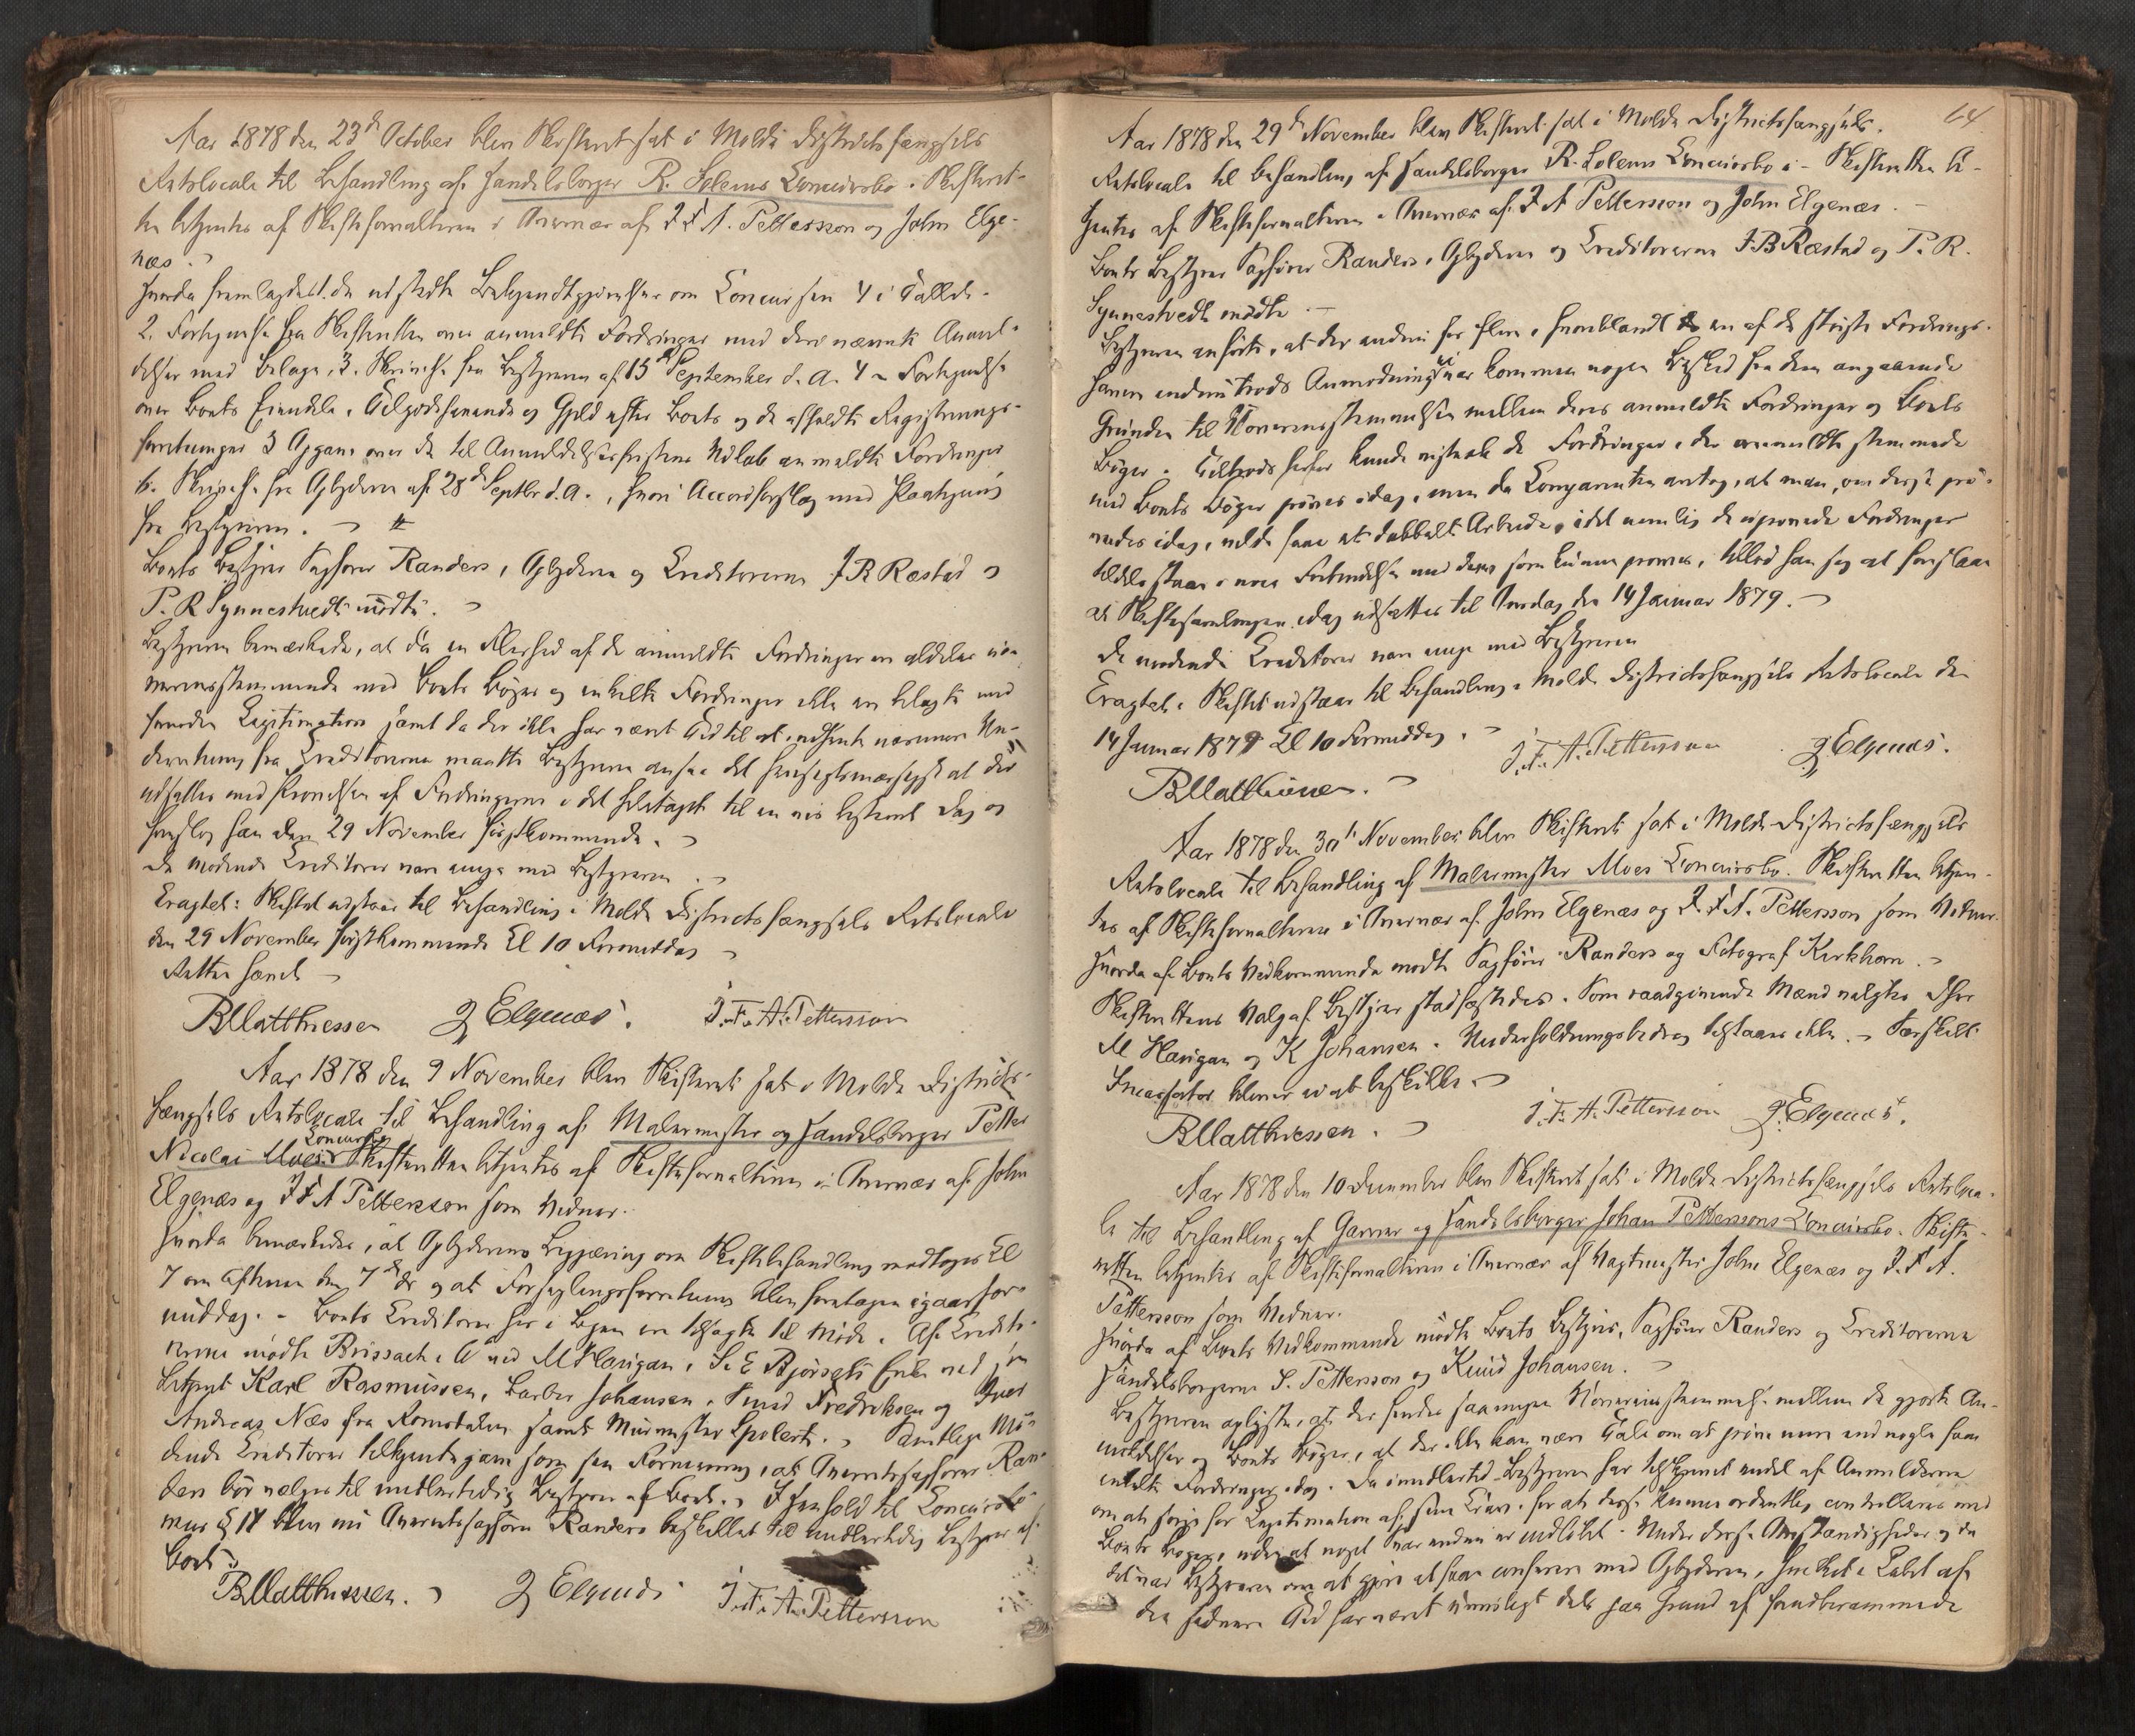 Aar 1878 den 23de October blev Skifteret sat i Molde Districtsfængsels
Retslocale til Behandling af Handelsborger R. Solems Concursbo. Skifteret-
ten betjentes af Skifteforvalteren i Overvær af J F A. Pettersson og John Elge-
næs.
Hvorda fremlagdes 1. de udstedte Bekjendtgjørelser om Concursen 4 i Tallet.
2. Fortegnelse fra Skifteretten over anmeldte Fordringer med deri nævnte Anmel-
delser med Bilage, 3. Skrivelse fra Bestyreren af 15de September d. A. 4 Fortegnelse
over Boets Eiendele, Tilgodehavende og Gjæld efter Boets og de afholdte Registrerings-
forretninger 5 Opgave over de til Anmeldelsesfristens Udløb anmeldte Fordringer
6. Skrivelse fra Opbyderen af 28de Septbr d. A., hvori Accordforslag med Paategning
fra Bestyreren.
Boets Bestyrer Sagfører Randers, Opbyderen og Creditorerne J B Ræstad og
P. R Synnestvedt mødte.
Bestyreren bemærkede, at da en Flerhed af de anmeldte Fordringer er aldeles uover
overensstemmende med Boets Bøger og enkelte Fordringer ikke er belagte med
fornøden Legitimation samt da der ikke har været Tid til at indhente nærmere Un-
derretning fra Creditorerne maatte Bestyreren ansee det hensigtsmæssigst at der
udsættes med Prøvelsen af Fordringerne i det Hele taget til en vis bestemt Dag og
foreslog han den 29 November førstkommende.
De mødende Creditorer vare enige med Bestyreren.
Eragtet: Skiftet udstaar til Behandling i Molde Districtsfængsels Retslocale
den 29 November førstkommende Kl 10 Formiddag
Retten hævet
B Matthiessen J Elgenæs. J. F. A. Pettersson
Aar 1878 den 9 November blev Skifteret sat i Molde Districts-
fængsels Retslocale til Behandling af Malermester og Handelsborger Petter
Nicolai Moes Concursbo Skifteretten betjentes af Skifteforvalteren i Overvær af John
Elgenæs og J F A Pettersson som Vidner.
Hvorda bemærkedes, at Opbyderens Begjæring om Skiftebehandling modtoges Kl
7 om Aftenen den 7de ds og at Forseglingsforretning blev foretagen igaar For-
middag. - Boets Creditorer her i Byen er tilsagte til Møde. Af Credito-
rerne mødte Brissach, A ved M Harigan, S. E Bjørsets Enke ved sin
Betjent Karl Rasmussen, Barber Johansen, Smed Fredriksen og
Andreas Næs fra Romsdalen samt Muurmester Spolert. Samtlige Mø-
dende Creditorer tilkjendegave som sin Formening, at Overretssagfører Ran-
ders bør vælges til midlertidig Bestyrer af Boet. I Henhold til Concurslo-
vens § 14 blev nu Overretssagfører Randers beskikket til midlertidig Bestyrer af
Boet.
B Matthiessen. J Elgenæs J. F. A. Pettersson
64
Aar 1878 den 29de November blev Skifteret sat i Molde Districtsfængsels
Retslocale til Behandling af Handelsborger R. Solems Concursbo. Skifteretten be-
tjentes af Skifteforvalteren i Overvær af J A Pettersson og John Elgenæs.
Boets Bestyrer Sagfører Randers, Opbyderen og Creditorerne J. B Ræstad og P. R.
Synnestvedt mødte.
Bestyreren anførte, at der endnu for flere, hvoriblandt en af de største Fordrings-
havere endnu trods Anmodning ei var kommen nogen Besked fra dem angaaende
Grunden til Uoverensstemmelsen mellem deres anmeldte Fordringer og Boets
Bøger. Tiltrods herfor kunde vistnok de Fordringer, der overensstemmede
med Boets Bøger prøves idag, men da Comparenten antog, at man, om disse prø-
vedes idag, vilde faae et dobbelt Arbeide, idet nemlig de uprøvede Fordringer
tildels staar i nøie Forbindelse med dem som kunne prøves, tillod han sig at foreslaa
at Skiftesamlingen idag udsættes til Tirsdag den 14 Januar 1879.
De mødende Creditorer vare enige med Bestyreren
Eragtet: Skiftet udstaar til Behandling i Molde Districtsfængsels Retslocale den
14 Januar 1879 Kl 10 Formiddag.
B Matthiessen. J. F. A. Pettersson J. Elgenæs.
Aar 1878 den 30te November blev Skifteret sat i Molde Districtsfængsels
Retslocale til Behandling af Malermester Moes Concursbo. Skifteretten betjen-
tes af Skifteforvalteren i Overvær af John Elgenæs og J. F A. Pettersson som Vidner.
Hvorda af Boets Vedkommende mødte Sagfører Randers og Fotograf Kirkhorn.
Skifterettens Valg af Bestyrer stadfæstedes. Som raadgivende Mænd valgtes Dhrr
M Harigan og K Johansen. Underholdningsbidrag tilstaaes ikke. Særskilt
Incassator bliver ei at beskikke.
B Matthiessen. J. F. A. Pettersson J. Elgenæs.
Aar 1878 den 10 December blev Skifteret sat i Molde Districtsfængsels Retsloca-
le til Behandling af Garver og Handelsborger Johan Petterssons Concursbo. Skifte-
retten betjentes af Skifteforvalteren i Overvær af Vagtmester John Elgenæs og J. F A.
Pettersson som Vidner.
Hvorda af Boets Vedkommende mødte Boets Bestyrer, Sagfører Randers og Creditorerne
Handelsborgerne S. Pettersson og Knud Johansen.
Bestyreren oplyste, at der findes saa megen Uoverensstemmelse mellem de gjorte An-
meldelser og Boets Bøger, at der ikke kan være Tale om at prøve mere end nogle faae
enkelte Fordringer idag. Da imidlertid Bestyreren har tilskrevet endel af Anmelderne
om at sørge for Legitimation af sine Krav for at disse kunne ordentlig controlleres med
Boets Bøger, uden at noget Svar endnu er indløbet. Under disse Omstændigheder og da
det var Bestyreren om at gjøre at faae conferere med Opbyderen, hvilket i Løbet af
den sednere Tid har været umuligt dels paa Grund af Handbrammede